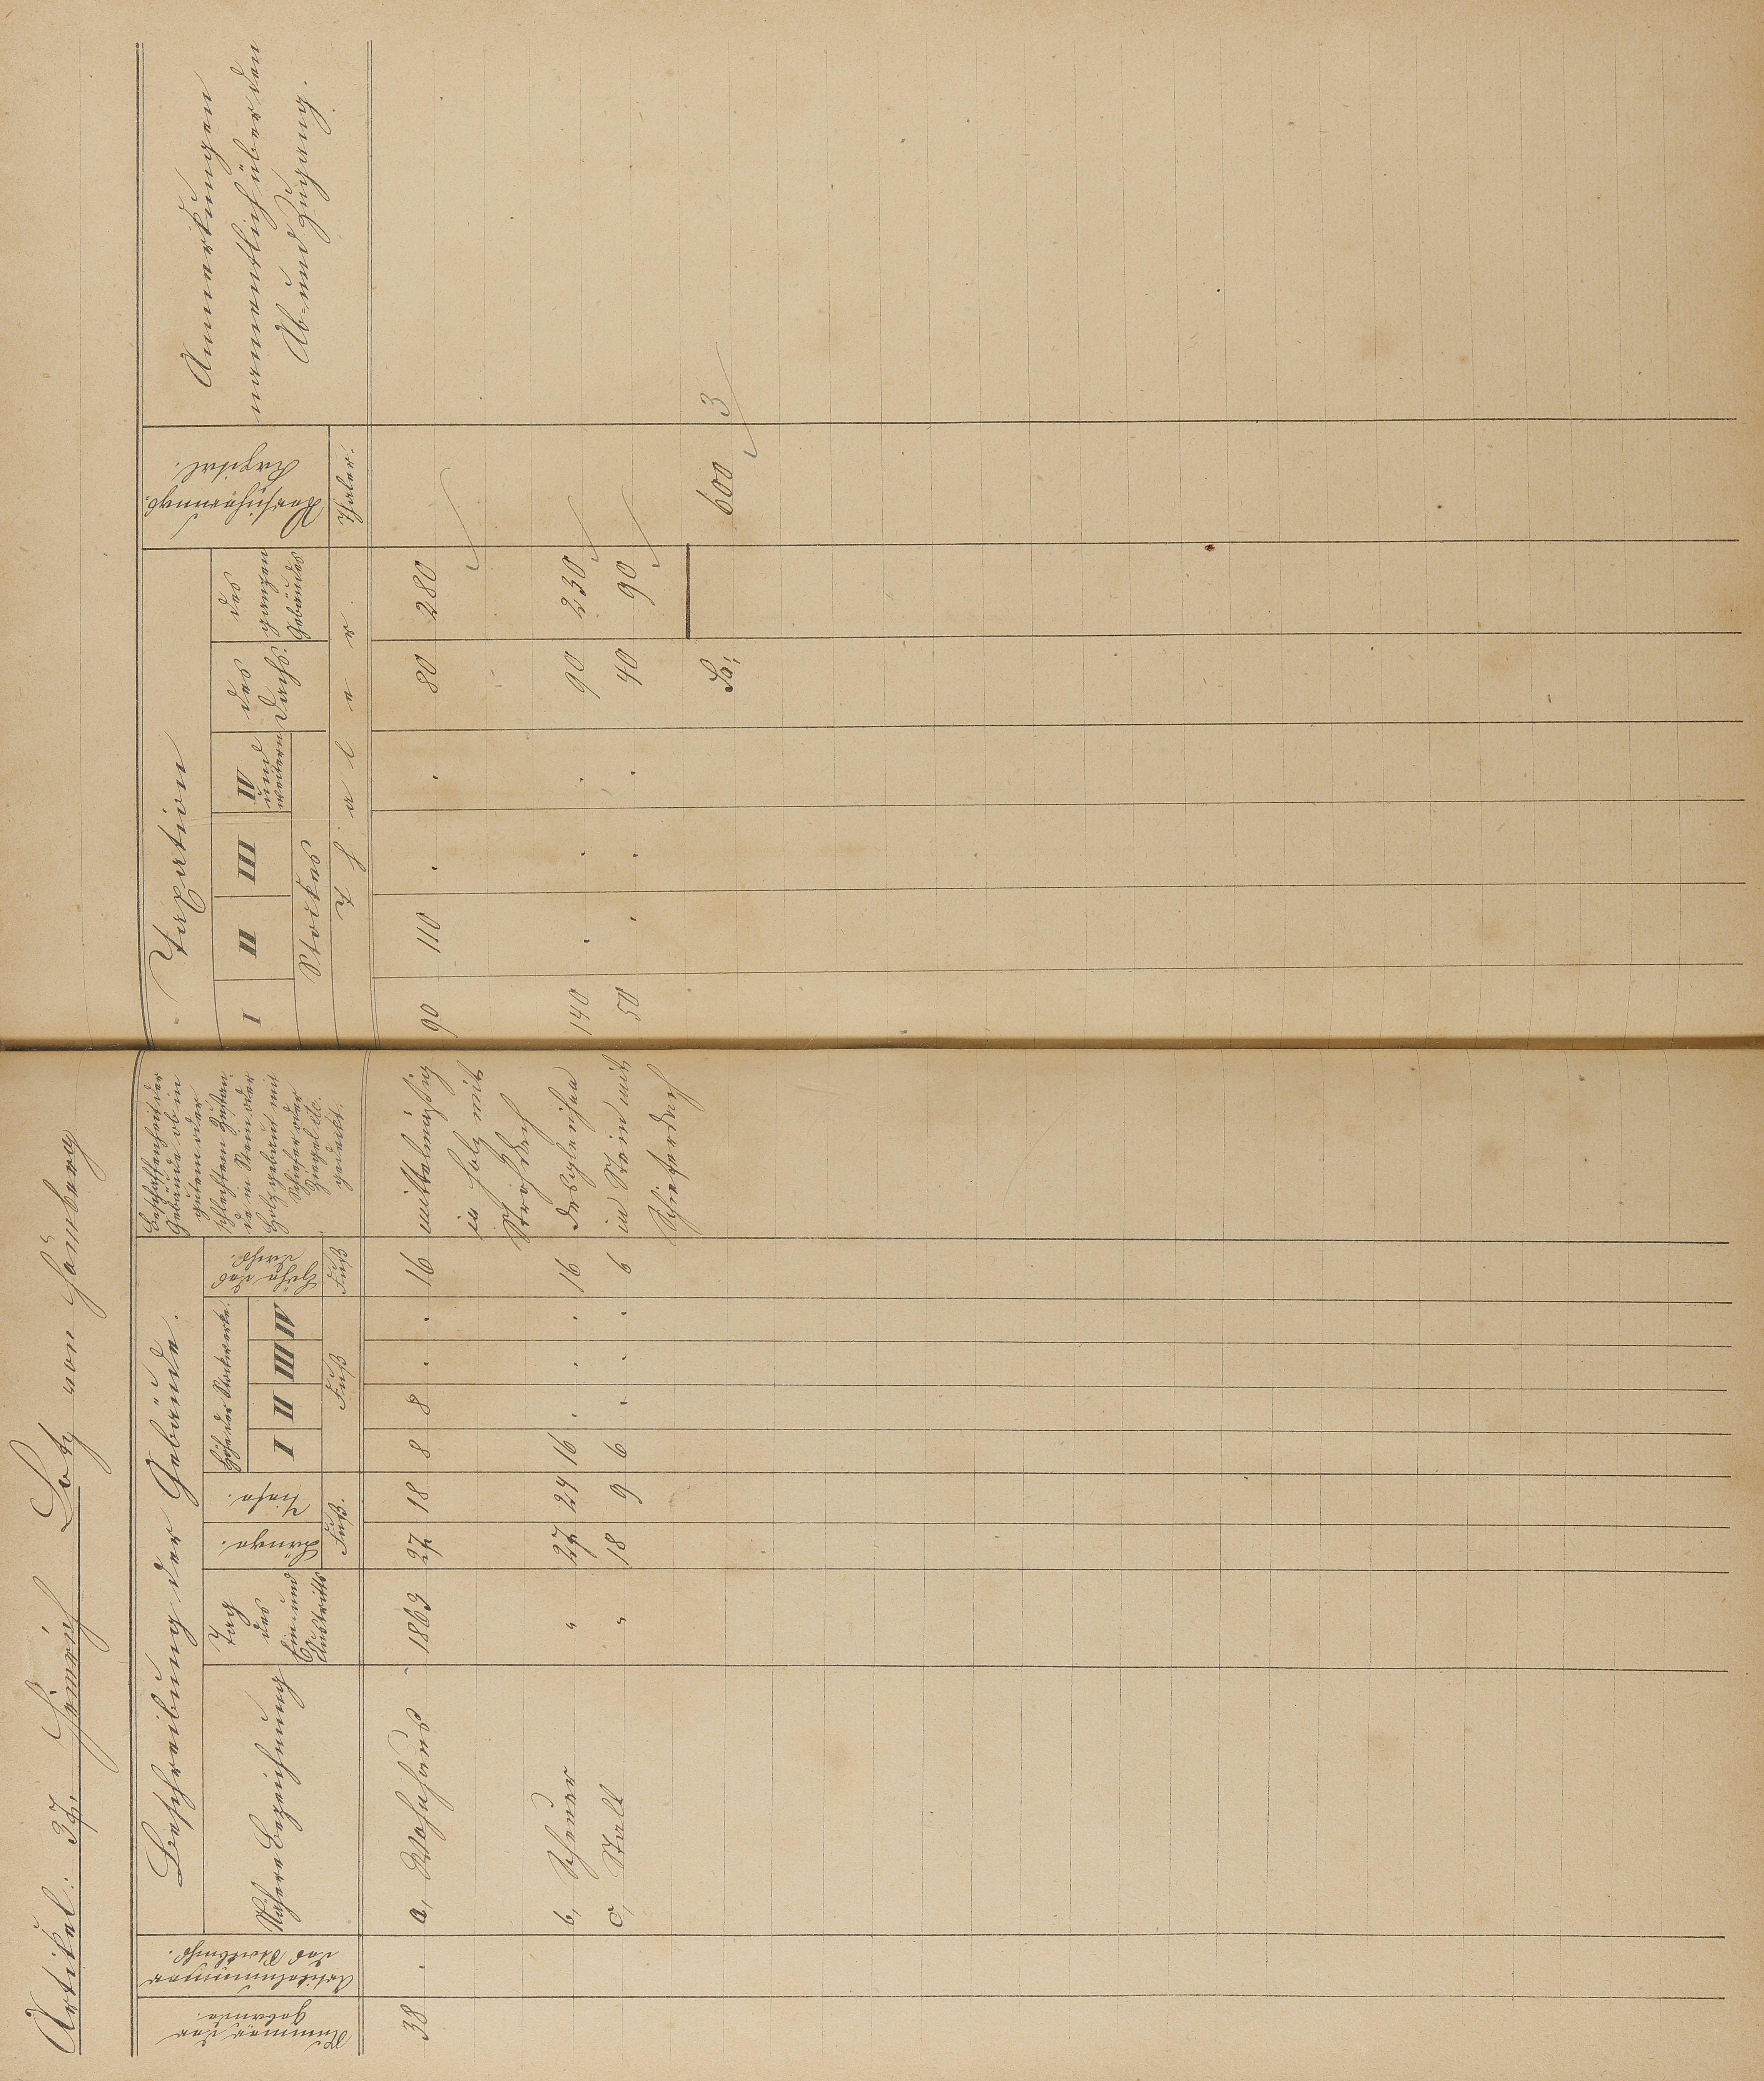 Artikel: 37. Heinrich Lotz von Hamberg
Nummer der
Gebäude.
Artikelnummer
des Stockbuchs.
Beschreibung der Gebäude.
Nähere Bezeichnung
Tag
des
Ein- und
Austritts
Länge.
Tiefe.
Fuß.
Höhe der Stockwerke.
I II III IV
Fuß
Höhe des
Dachs.
Fuß
Beschaffenheit der
Gebäude ob in
gutem oder
schlechtem Zustan
de in Stein oder
Holz gebaut mit
Schiefer oder
Ziegel etc.
gedeckt.
Taxation
I II III IV
und
weitern
Stockes
des
Dachs.
des
ganzen
Gebäudes
Thaler.
Versicherungs.
Kapital.
Thaler.
Anmerkungen
namentlich über den
Ab- und Zugang.
38 - a, Wohnhaus 1863 27 18 8 8 . . 16 mittelmäßig 90 110 . . 80 280
in Holz mit
Strohdach
b, Scheuer " 27 24 16 . . . 16 desgleichen 140 . . . 90 230
c, Stall " 18 9 6 . . . 6 in Stein mit 50 . . . 40 90
Schieferdach
Sa, 600 3